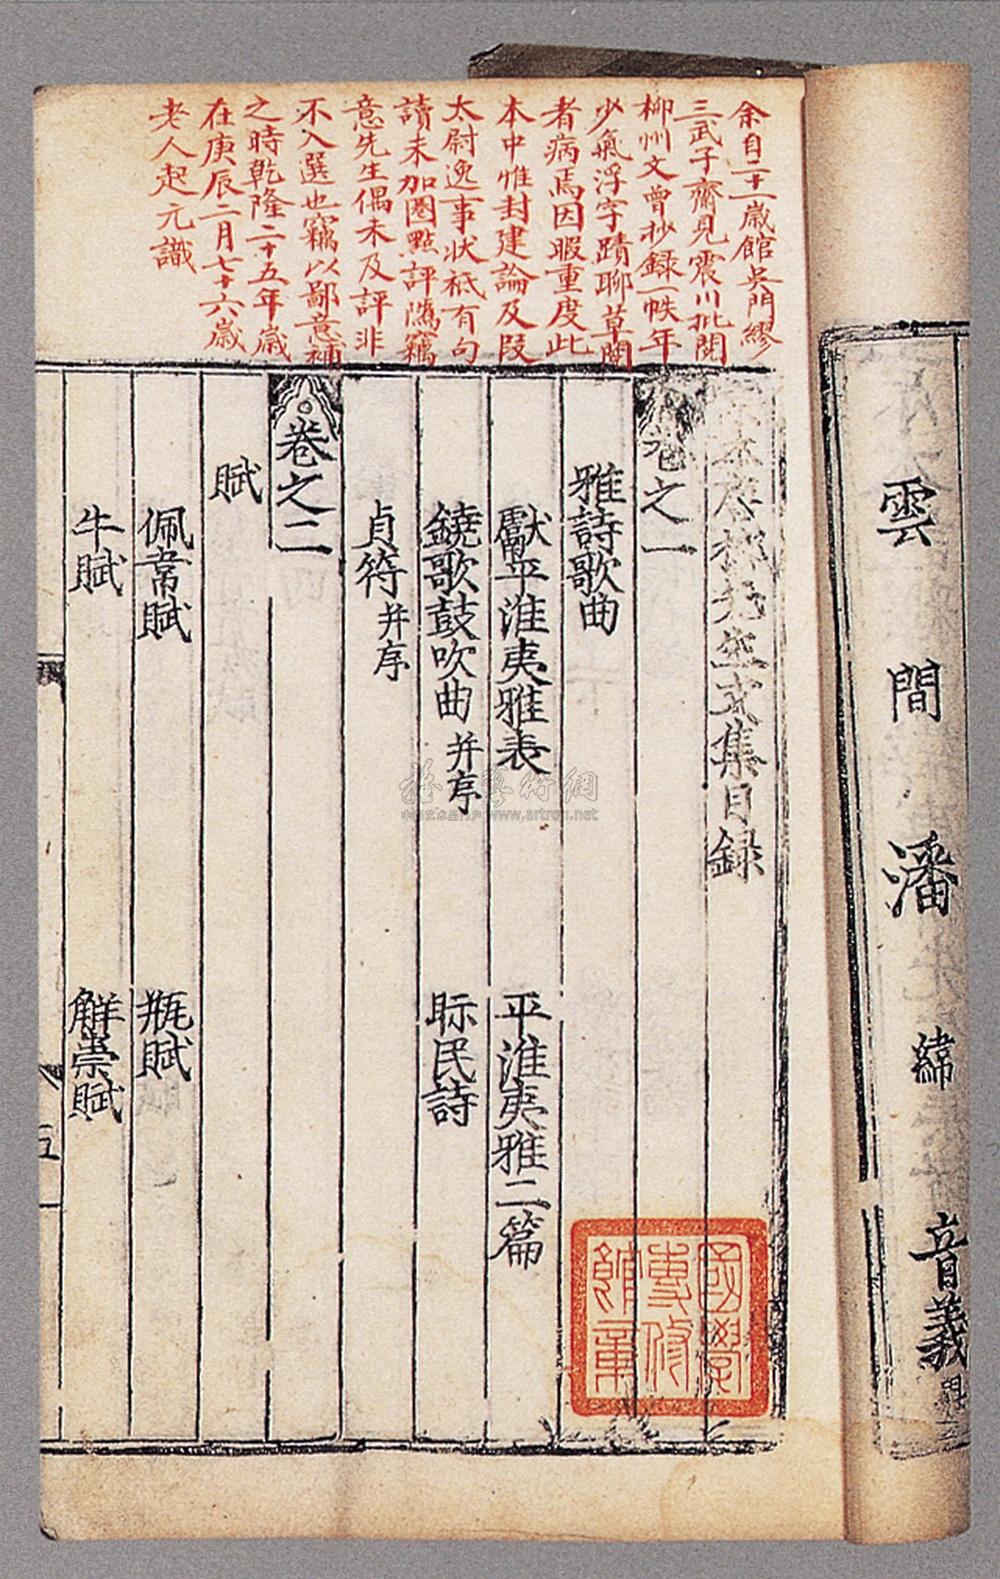 雲間潘緯音義
余自二十一歲館吳門繆
三武子齋見震川批閱
柳州文曾抄錄一帙年
少氣浮字蹟聊草閱
者病焉因暇重度此
本中惟封建論及段
太尉逸事狀祇有句
讀未加圈點評隲竊
意先生偶未及評非
不入選也竊以鄙意補
之時乾隆二十五年歲
在庚辰二月七十六歲
老人起元識
本唐柳先生文集目録
卷之一
雅詩歌曲
獻平淮夷雅表 平淮夷雅二篇
鐃歌鼓吹曲并序 眎民詩
貞符并序
卷之二
賦
佩韋賦 瓶賦
牛賦 解祟賦
五
國學
專修
館章
藝術網
www.artron.net